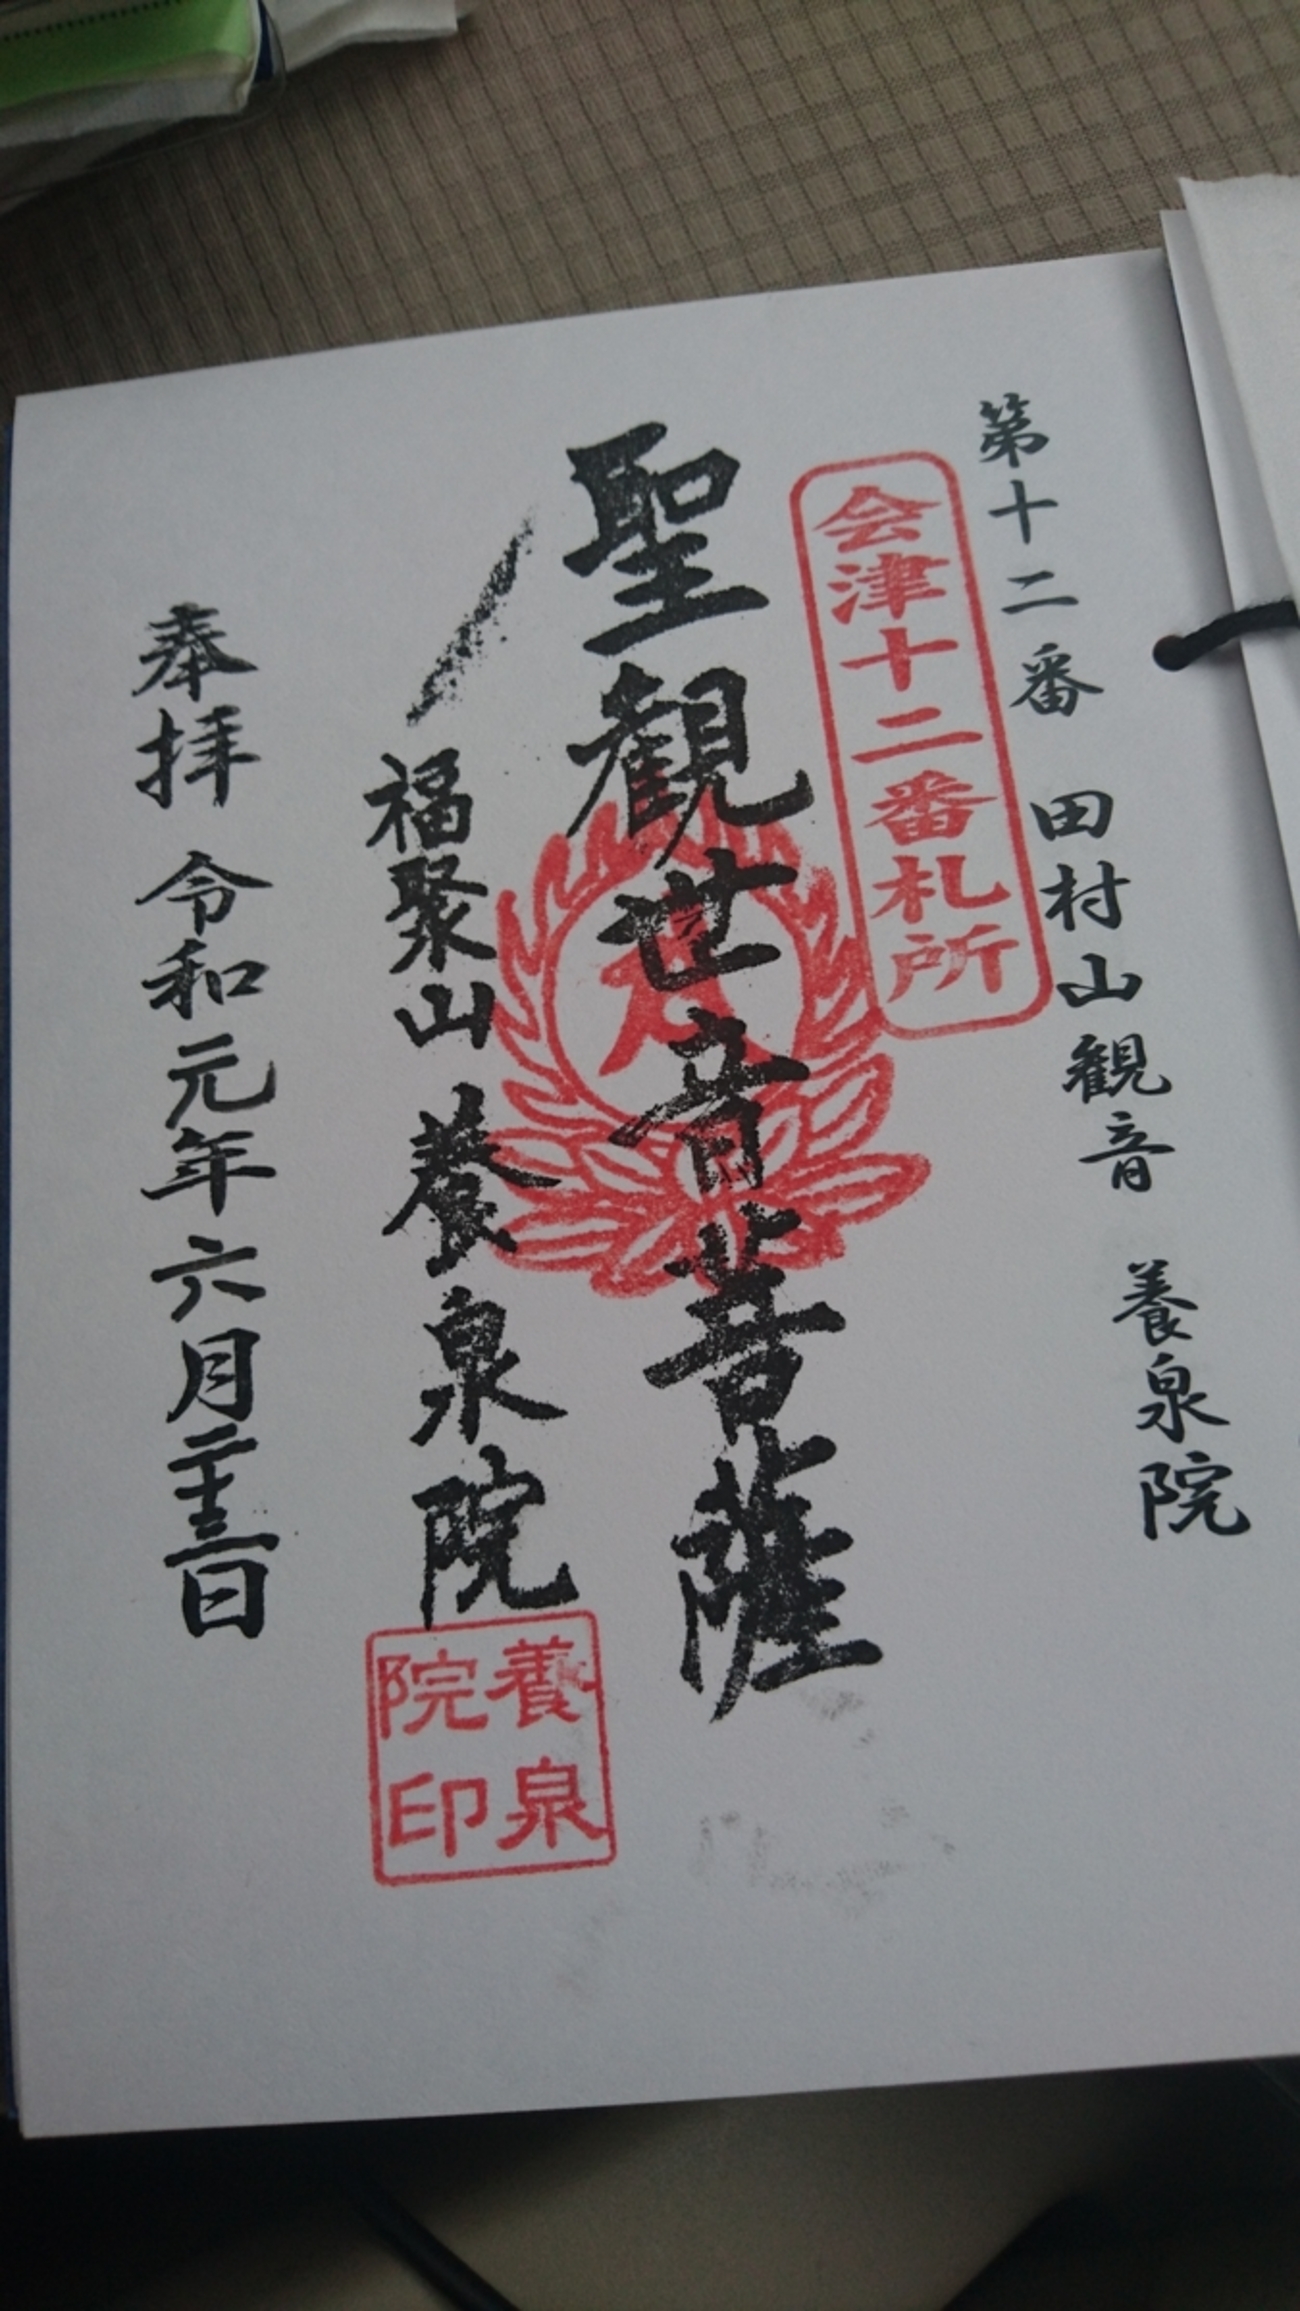 第十二番 田村山観音 養泉院
会津十二番札所
聖観世音菩薩
福聚山 養泉院
養泉院印
奉拝 令和元年六月二十三日